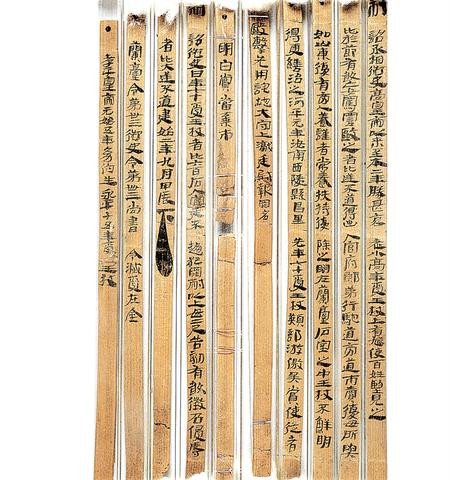 制詔丞相御史高皇帝以來至本二年勝甚哀老小高年受王杖上有鳩使百姓望見之
比於節有敢妄罵詈毆之者比逆不道得出入官府郎第行馳道旁道市賣復毋所與
如山東復有旁人養謹者常養扶持復除之明在蘭臺石室之中王杖不鮮明
得更繕治之河平元年汝南西陵縣昌里先年七十受王杖頪部游徼吳賞使從者
毆擊先用詫地大守上讞廷尉報罪名
明白賞當棄市
制詔御史曰年七十受王杖者比六百石入宮廷不趨犯罪耐以上毋二尺告劾有敢徵召侵辱
者比大逆不道建始二年九月甲辰下
蘭臺令第卅三御史令第卌三尚書令滅受在金
孝平皇帝元始五年幼伯生永平十五年受王杖